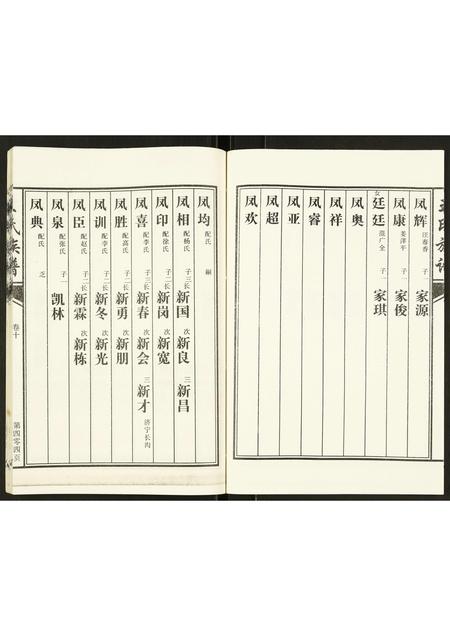 凤辉 汪春香 子一 家源
凤康 姜洋平 子一 家俊
女 廷廷 范广全 子一 家琪
凤奥
凤祥
凤睿
凤亚
凤超
凤欢
凤均 配氏 嗣
凤相 配杨氏 子三 长 新国 次 新良 三 新昌
凤印 配徐氏 子二 长 新岗 次 新宽
凤喜 配李氏 子三 长 新春 次 新会 三 新才 济宁长沟
凤胜 配高氏 子二 长 新勇 次 新朋
凤训 配李氏 子二 长 新冬 次 新光
凤臣 配赵氏 子二 长 新霖 次 新栋
凤泉 配张氏 子一 凯林
凤典 配氏 乏
氏族谱
卷十
第四零四页